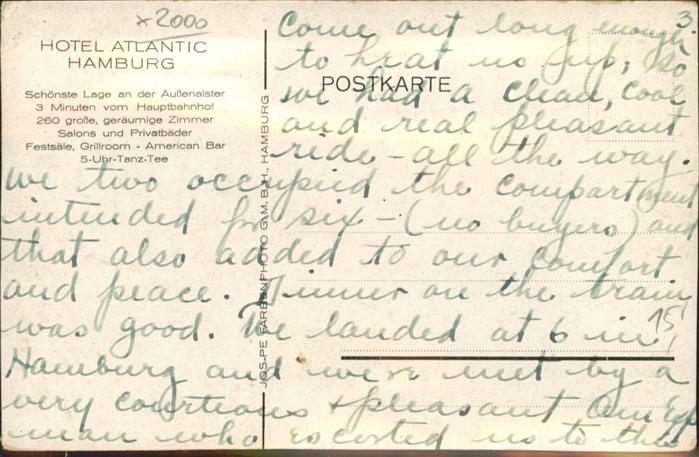 x2000
3.
HOTEL ATLANTIC
HAMBURG
Schönste Lage an der Außenalster
3 Minuten vom Hauptbahnhof
260 große, geräumige Zimmer
Salons und Privatbäder
Festsäle, Grillroom - American Bar
5-Uhr-Tanz-Tee
POSTKARTE
JOS-PE FARBENPHOTO G.M.B.H., HAMBURG
Come out long enough
to heat us up, so
we had a clean, cool
and real pleasant
ride - all the way.
We two occupied the compartment
intended for six - (no buyers) and
that also added to our comfort
and peace. Dinner on the train
was good. We landed at 6 in
Hamburg and were met by a
very courteous + pleasant Am Ex
man who escorted us to the
15,